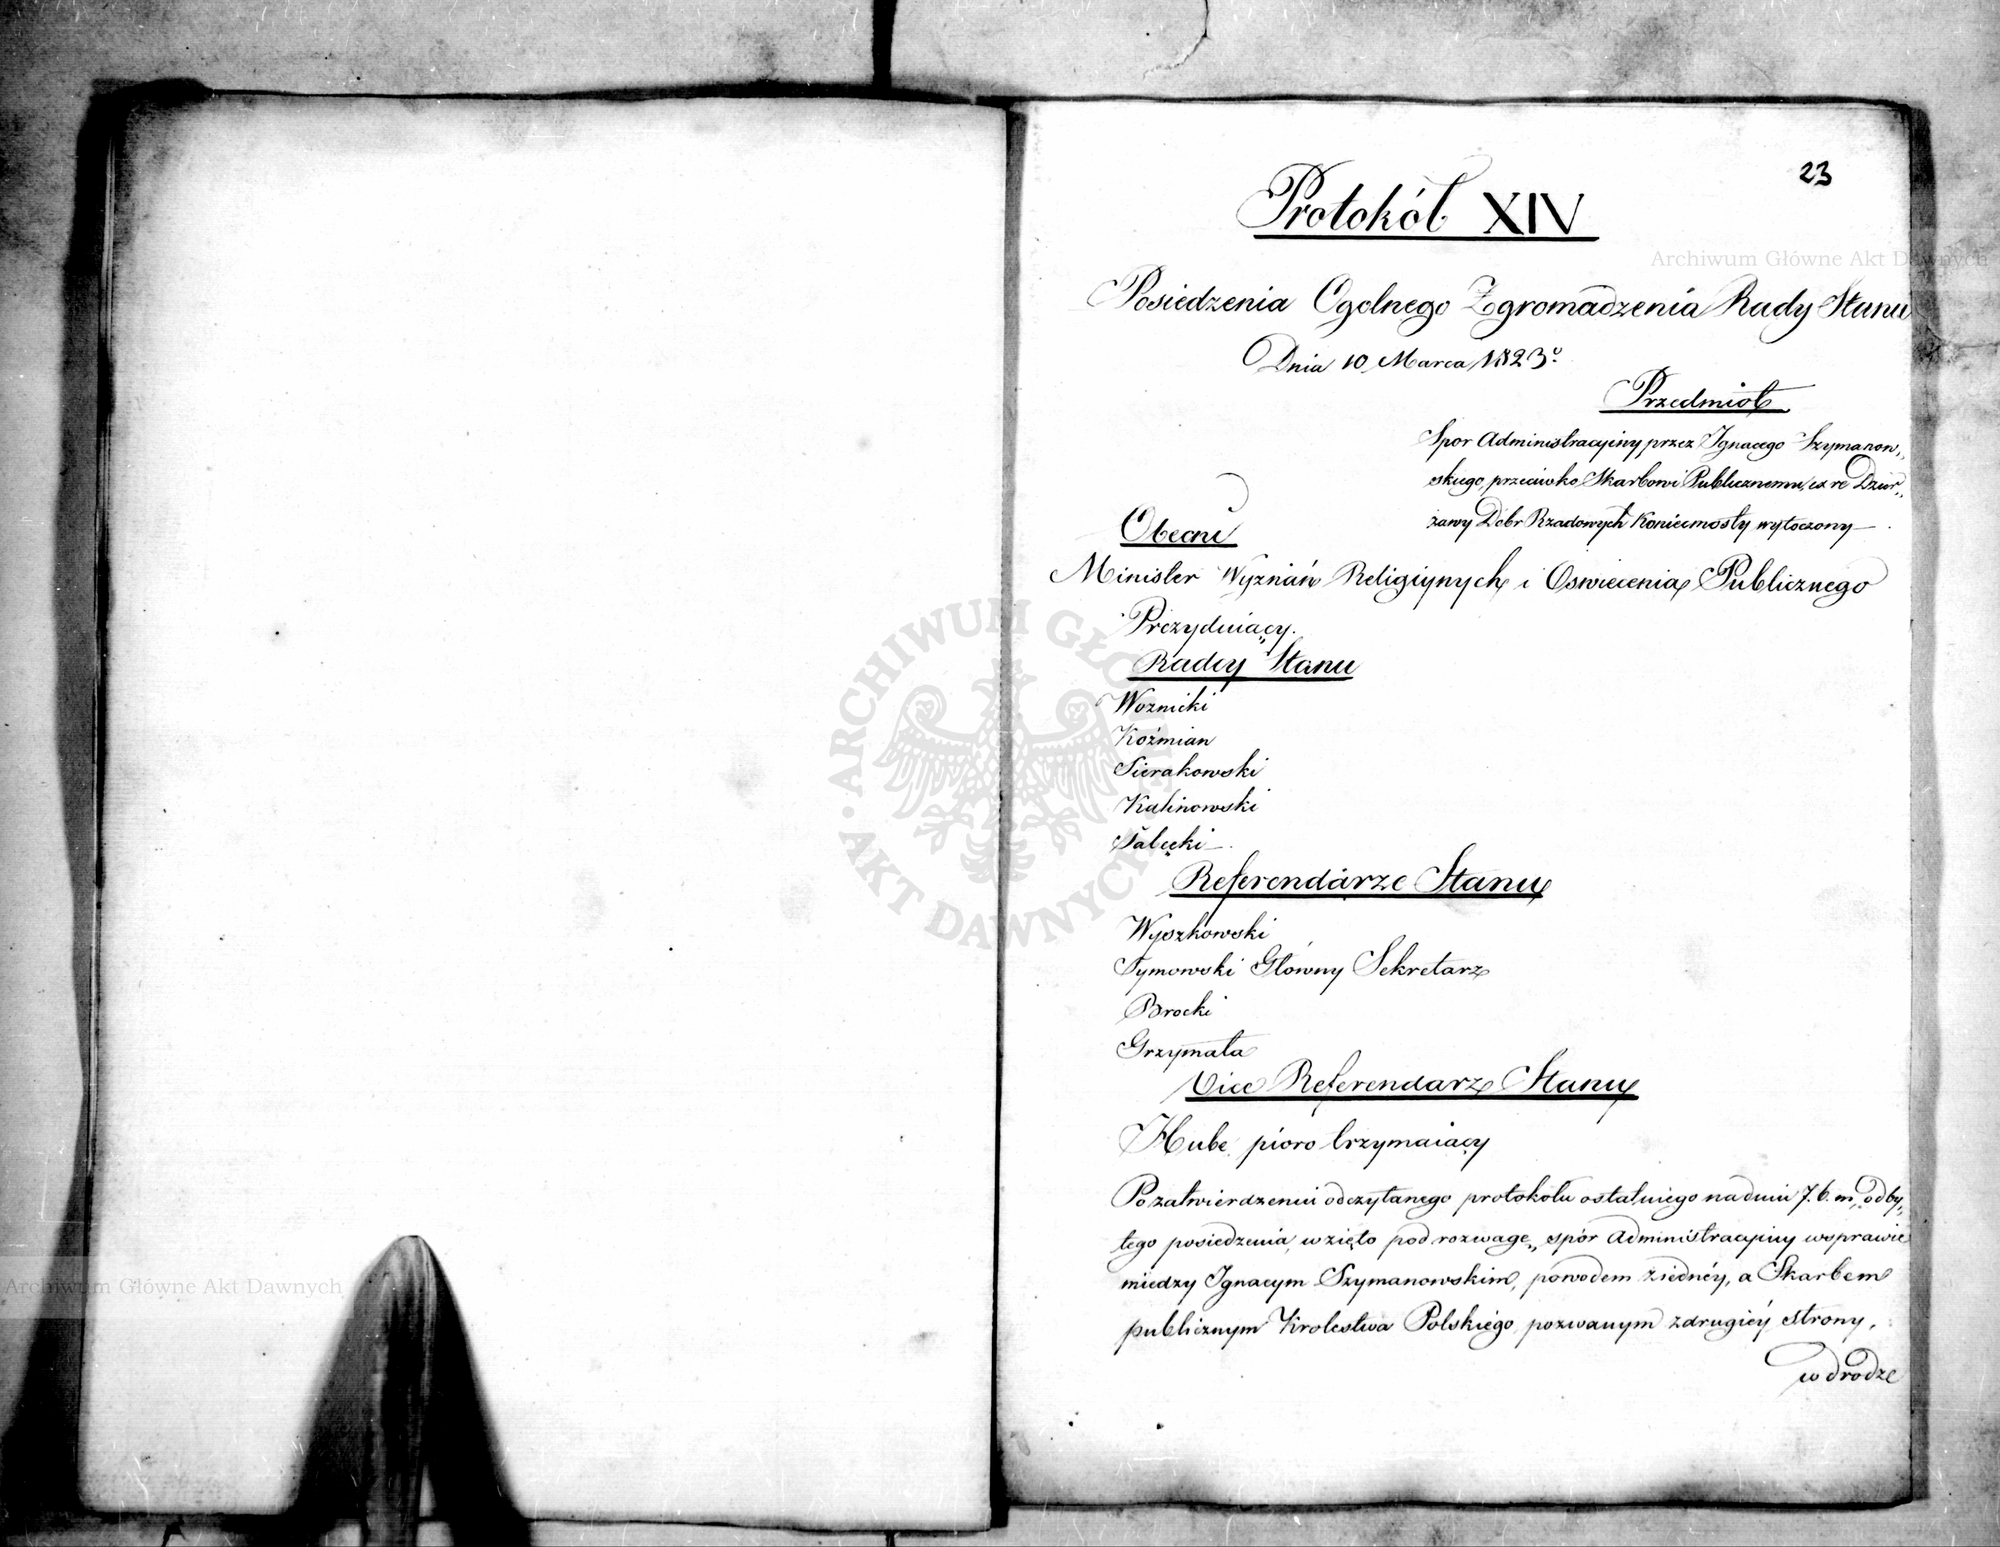 23
Protokół XIV
Posiedzenia Ogolnego Zgromadzenia Rady Stanu
Dnia 10 Marca 1823º.
Przedmiot
Spor Administracyiny przez Ignacego Szymanow„
skiego, przeciwko Skarbowi Publicznemu, ex re Dzier„
żawy Dóbr Rządowych Koniecmosty wytoczony —
Obecni
Minister Wyznań Religiynych i Oswiecenia Publicznego
Prezyduiący.
Radcy Stanu
Woznicki
Koźmian
Sierakowski
Kalinowski
Faltęcki
Referendarze Stanu
Wyszkowski
Tymowski Głowny Sekretarz
Brocki
Grzymała
Vice Referendarz Stanu
Hube pioro trzymaiący
Po zatwierdzeniu odczytanego protokołu ostatniego na dniu 7. b. m. odby„
tego posiedzenia, wzięto pod rozwagę, spór Administracyiny w sprawie
między Ignacym Szymanowskim, powodem z iednéy, a Skarbem
publicznym Krolestwa Polskiego pozwanym z drugiéy strony,
w drodze
Archiwum Główne Akt Dawnych
Archiwum Główne Akt Dawnych
ARCHIWUM GŁÓWNE AKT DAWNYCH